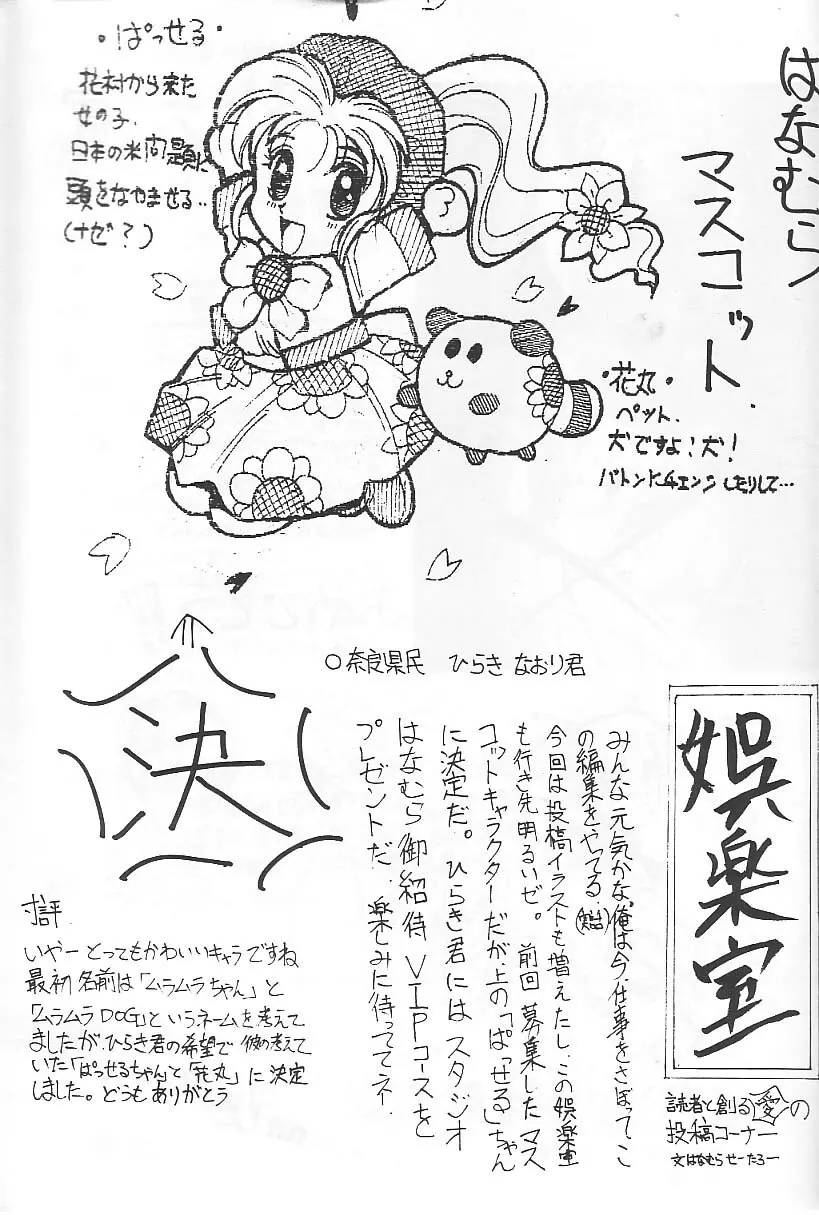 はなむら
マスコット.
・ぱっせる・
花村から来た
女の子.
日本の米問題に
頭をなやませる..
(ナゼ?)
・花丸・
ペット.
犬ですよ!犬!
バトンにチェンジしたりして…
決
○奈良県民 ひらき なおり君
娯楽室
読者と創る愛の
投稿コーナー
文はなむらせーたろー
みんな元気かな、俺は今、仕事をさぼってこ
の編集をやってる
今回は投稿イラストも増えたし、この娯楽室
も行き先明るいゼ。 前回募集したマス
コットキャラクターだが、上の「ぱっせる」ちゃん
に決定だ。ひらき君にはスタジオ
はなむら御紹待VIPコースを
プレゼントだ。楽しみに待っててネ.
いやーとってもかわいいキャラですね
最初名前は「ムラムラちゃん」と
「ムラムラDOG」というネームを考えて
ましたが、ひらき君の希望で彼の考えて
いた「ぱっせるちゃん」と「花丸」に決定
しました。どうもありがとう